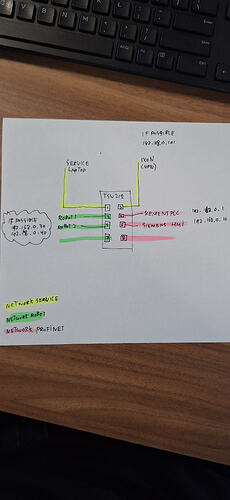 IF POSSIBLE
192.168.0.101
SERVICE
LAPTOP
IXON
(VPN)
TSW212
1
ROBOT 1
SIEMENS PLC
192.168.0.1
ROBOT 2
SIEMENS HMI
192.168.0.10
IF POSSIBLE
192.168.0.30
192.168.0.40
NETWORK SERVICE
NETWORK ROBOT
NETWORK PROFINET